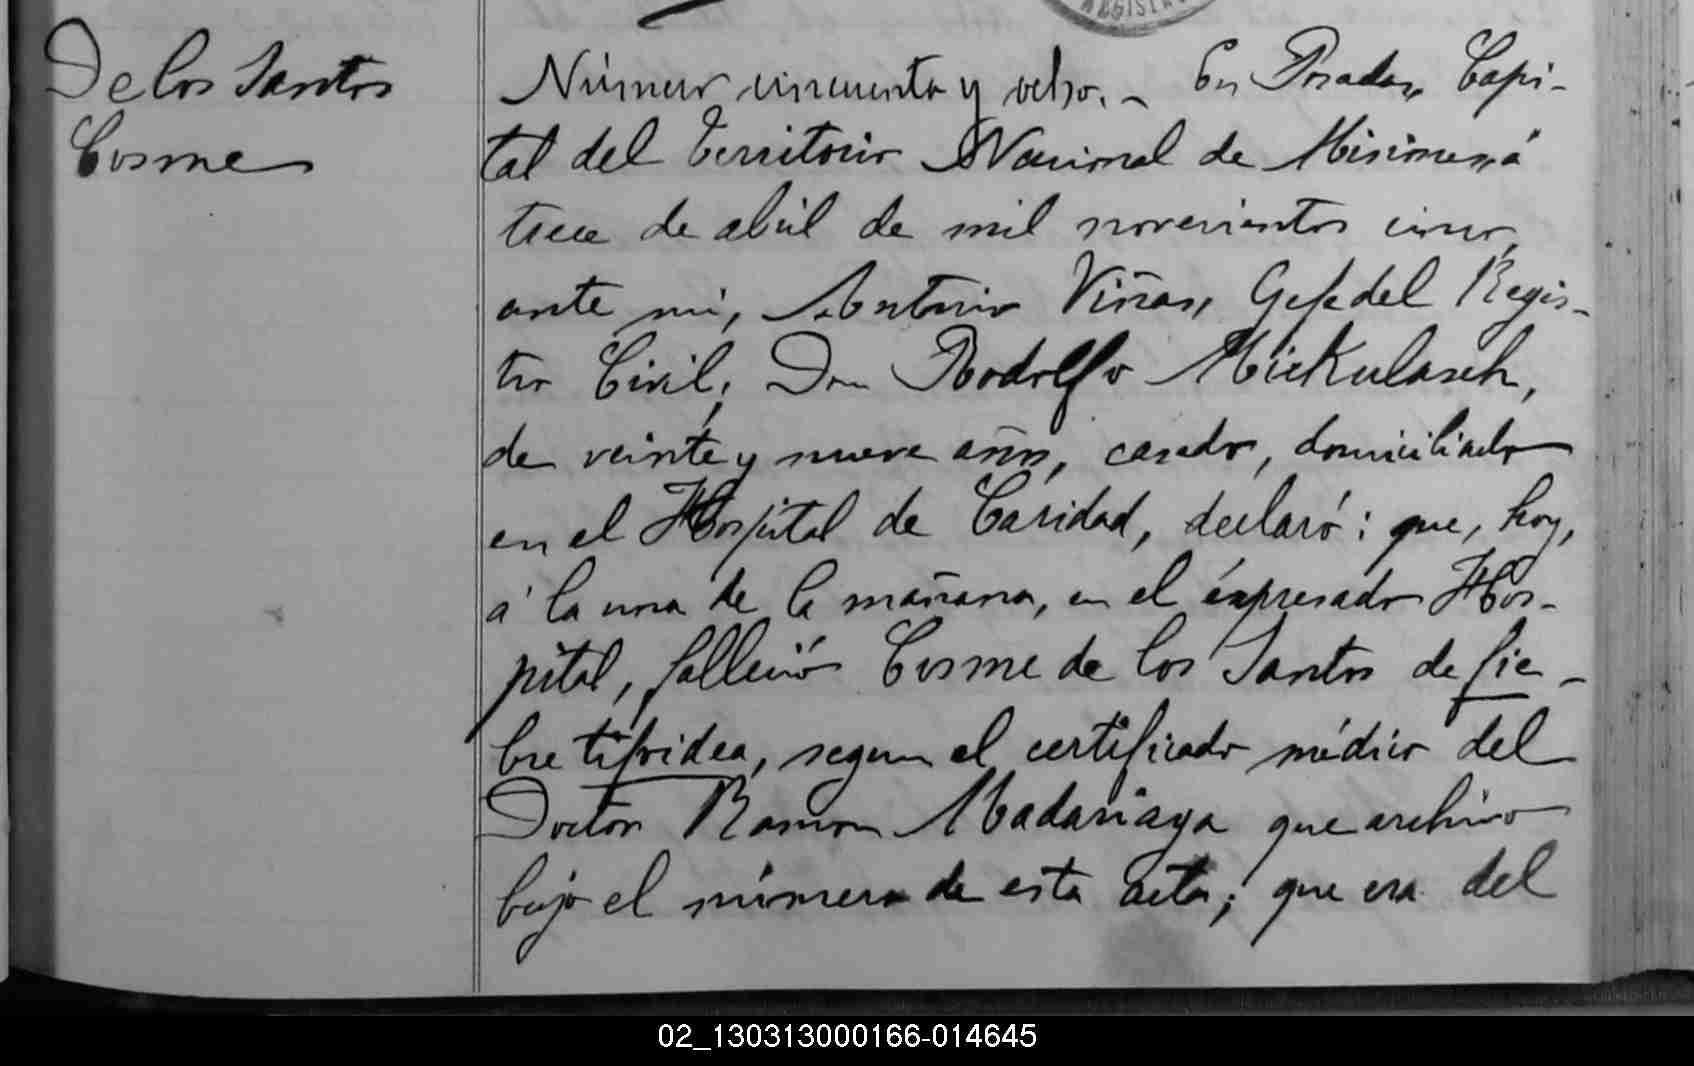 REGISTRO
De los Santos
Cosme
Número cincuenta y ocho. - En Posadas, Capi-
tal del Territorio Nacional de Misiones, á
trece de abril de mil novecientos cinco,
ante mi, Antonio Viñas, Gefe del Regis-
tro Civil, Don Rodolfo Mickulasch,
de veinte y nueve años, casado, domiciliado
en el Hospital de Caridad, declaró: que, hoy,
á la una de la mañana, en el expresado Hos-
pital, falleció Cosme de los Santos de fie-
bre tifoidea, segun el certificado médico del
Doctor Ramon Madariaga que archivo
bajo el número de esta acta; que era del
02_130313000166-014645